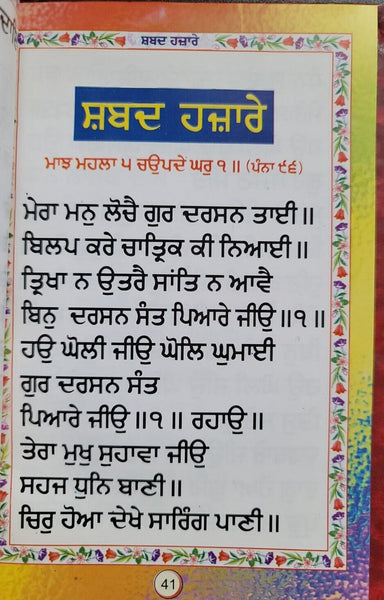 ਸ਼ਬਦ ਹਜ਼ਾਰੇ
ਸ਼ਬਦ ਹਜ਼ਾਰੇ
ਮਾਝ ਮਹਲਾ ੫ ਚਉਪਦੇ ਘਰੁ ੧ ॥ (ਪੰਨਾ ੯੬)
ਮੇਰਾ ਮਨੁ ਲੋਚੈ ਗੁਰ ਦਰਸਨ ਤਾਈ ॥
ਬਿਲਪ ਕਰੇ ਚਾਤ੍ਰਿਕ ਕੀ ਨਿਆਈ ॥
ਤ੍ਰਿਖਾ ਨ ਉਤਰੈ ਸਾਂਤਿ ਨ ਆਵੈ
ਬਿਨੁ ਦਰਸਨ ਸੰਤ ਪਿਆਰੇ ਜੀਉ ॥੧॥
ਹਉ ਘੋਲੀ ਜੀਉ ਘੋਲਿ ਘੁਮਾਈ
ਗੁਰ ਦਰਸਨ ਸੰਤ
ਪਿਆਰੇ ਜੀਉ ॥੧॥ ਰਹਾਉ ॥
ਤੇਰਾ ਮੁਖੁ ਸੁਹਾਵਾ ਜੀਉ
ਸਹਜ ਧੁਨਿ ਬਾਣੀ ॥
ਚਿਰੁ ਹੋਆ ਦੇਖੇ ਸਾਰਿੰਗ ਪਾਣੀ ॥
41